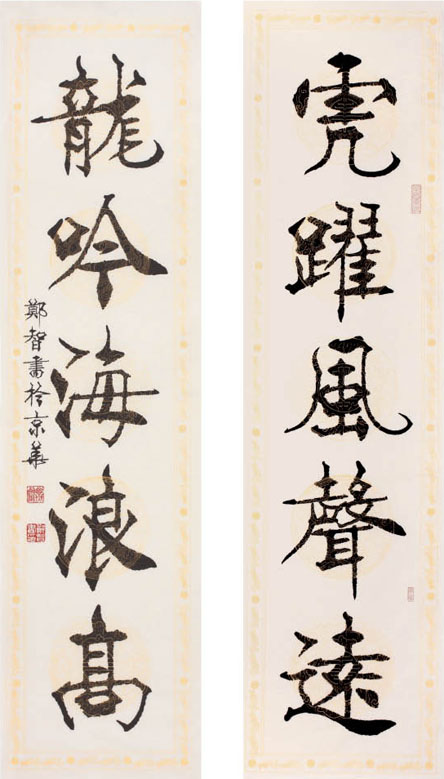 虎躍風聲遠
龍吟海浪高
鄭智書於京華